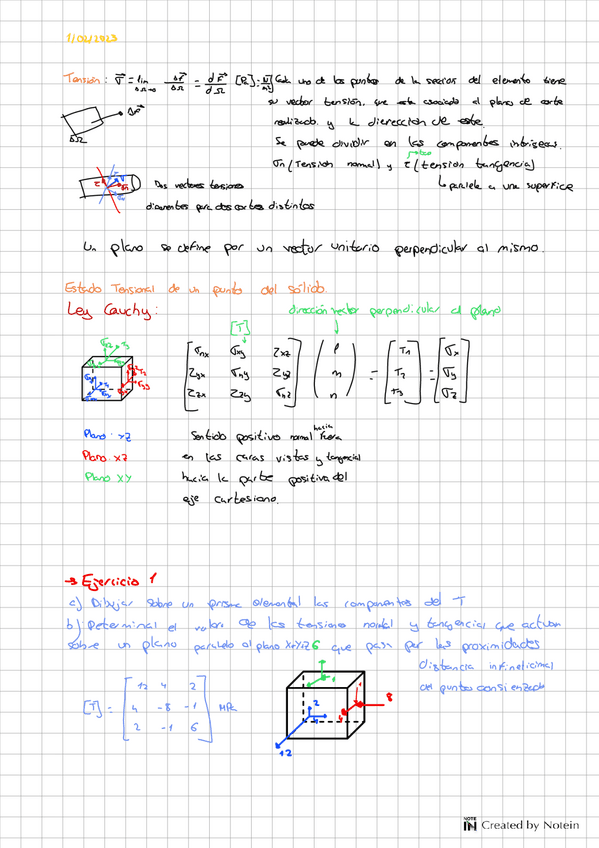 1/02/2023
Tensión: σ⃗ = lim ΔΩ→0 ΔF⃗/ΔΩ = dF⃗/dΩ [Pa]: N/m² Cada uno de los puntos de la sección del elemento tiene
su vector tensión, que esta asociado al plano de corte
realizado y la dirección de este.
Se puede dividir en las componentes intrisecas.
σn (Tensión normal) y τ (tensión tangencial)
↳ paralela a una superfice
ΔF⃗
ΔΩ
Dos vectores tensiones
diferentes para dos cortes distintos
Un plano se define por un vector unitario perpendicular al mismo.
Estado Tensional de un punto del sólido.
Ley Cauchy: dirección vector perpendicular al plano
[T]
σnx σxy τxz l T1 σx
τyx σny τyz m = T2 = σy
τzx τzy σnz n T3 σz
Plano: YZ Sentido positivo normal hacia fuera
Plano: XZ en las caras vistas y tangencial
Plano XY hacia la parte positiva del
eje cartesiano.
→ Ejercicio 1
a) Dibujar sobre un prisma elemental las componentes del T
b) Determinal el valor de las tensiones normal y tangencial que actuan
sobre un plano paralelo al plano X+Y+Z=6 que pasa por las proximidades
distancia infinitecimal
del punto consienzado
[T] = 12 4 2 MPa
4 -8 -1
2 -1 6
8
2
12
NOTE IN Created by Notein